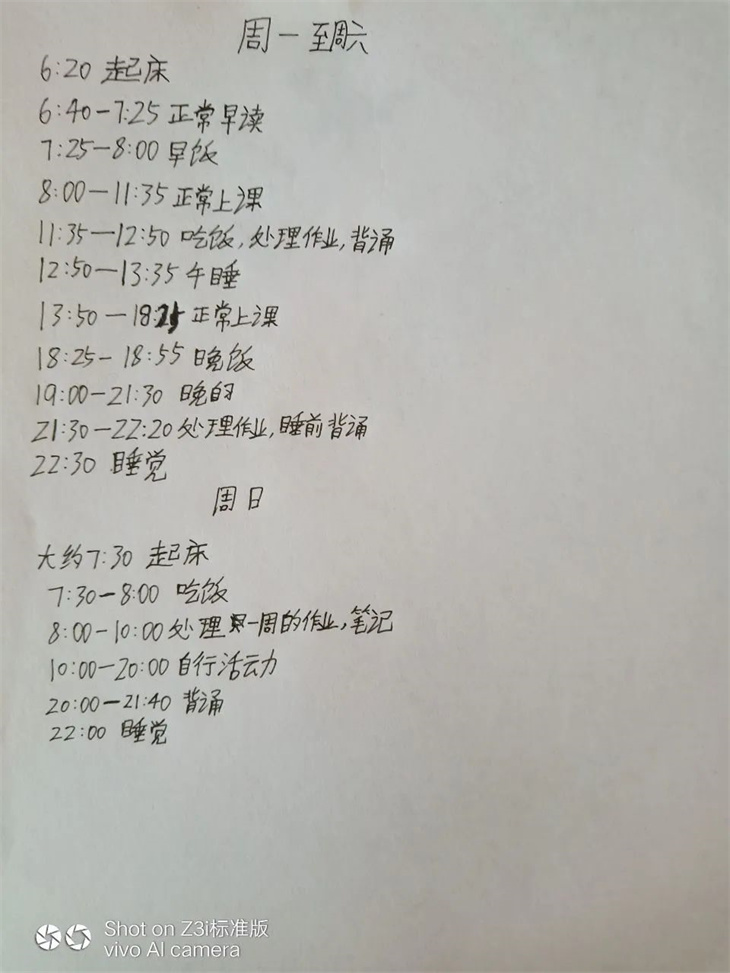 周一至周六
6:20 起床
6:40-7:25 正常早读
7:25-8:00 早饭
8:00-11:35 正常上课
11:35-12:50 吃饭,处理作业,背诵
12:50-13:35 午睡
13:50-18:25 正常上课
18:25-18:55 晚饭
19:00-21:30 晚自习
21:30-22:20 处理作业,睡前背诵
22:30 睡觉
周日
大约7:30 起床
7:30-8:00 吃饭
8:00-10:00 处理一周的作业,笔记
10:00-20:00 自行活动
20:00-21:40 背诵
22:00 睡觉
Shot on Z3i标准版
vivo AI camera